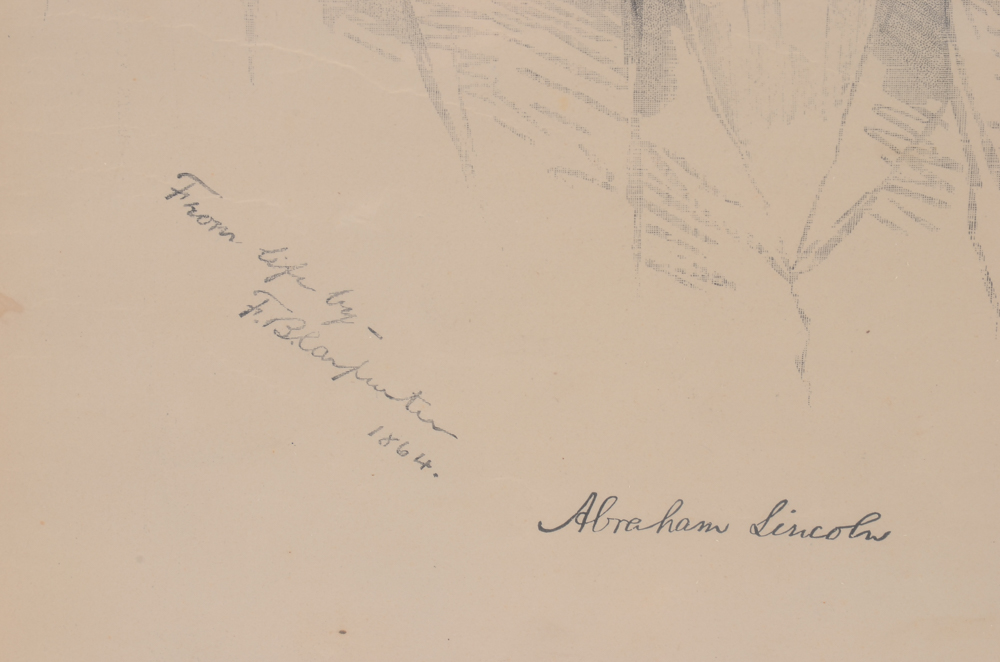 From life by-
F. B. Carpenter
1864.
Abraham Lincoln